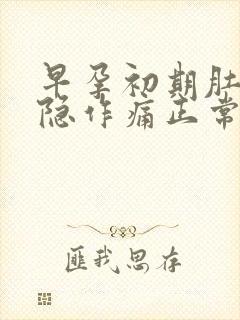 早孕初期肚
隐作痛正常
匪我思存